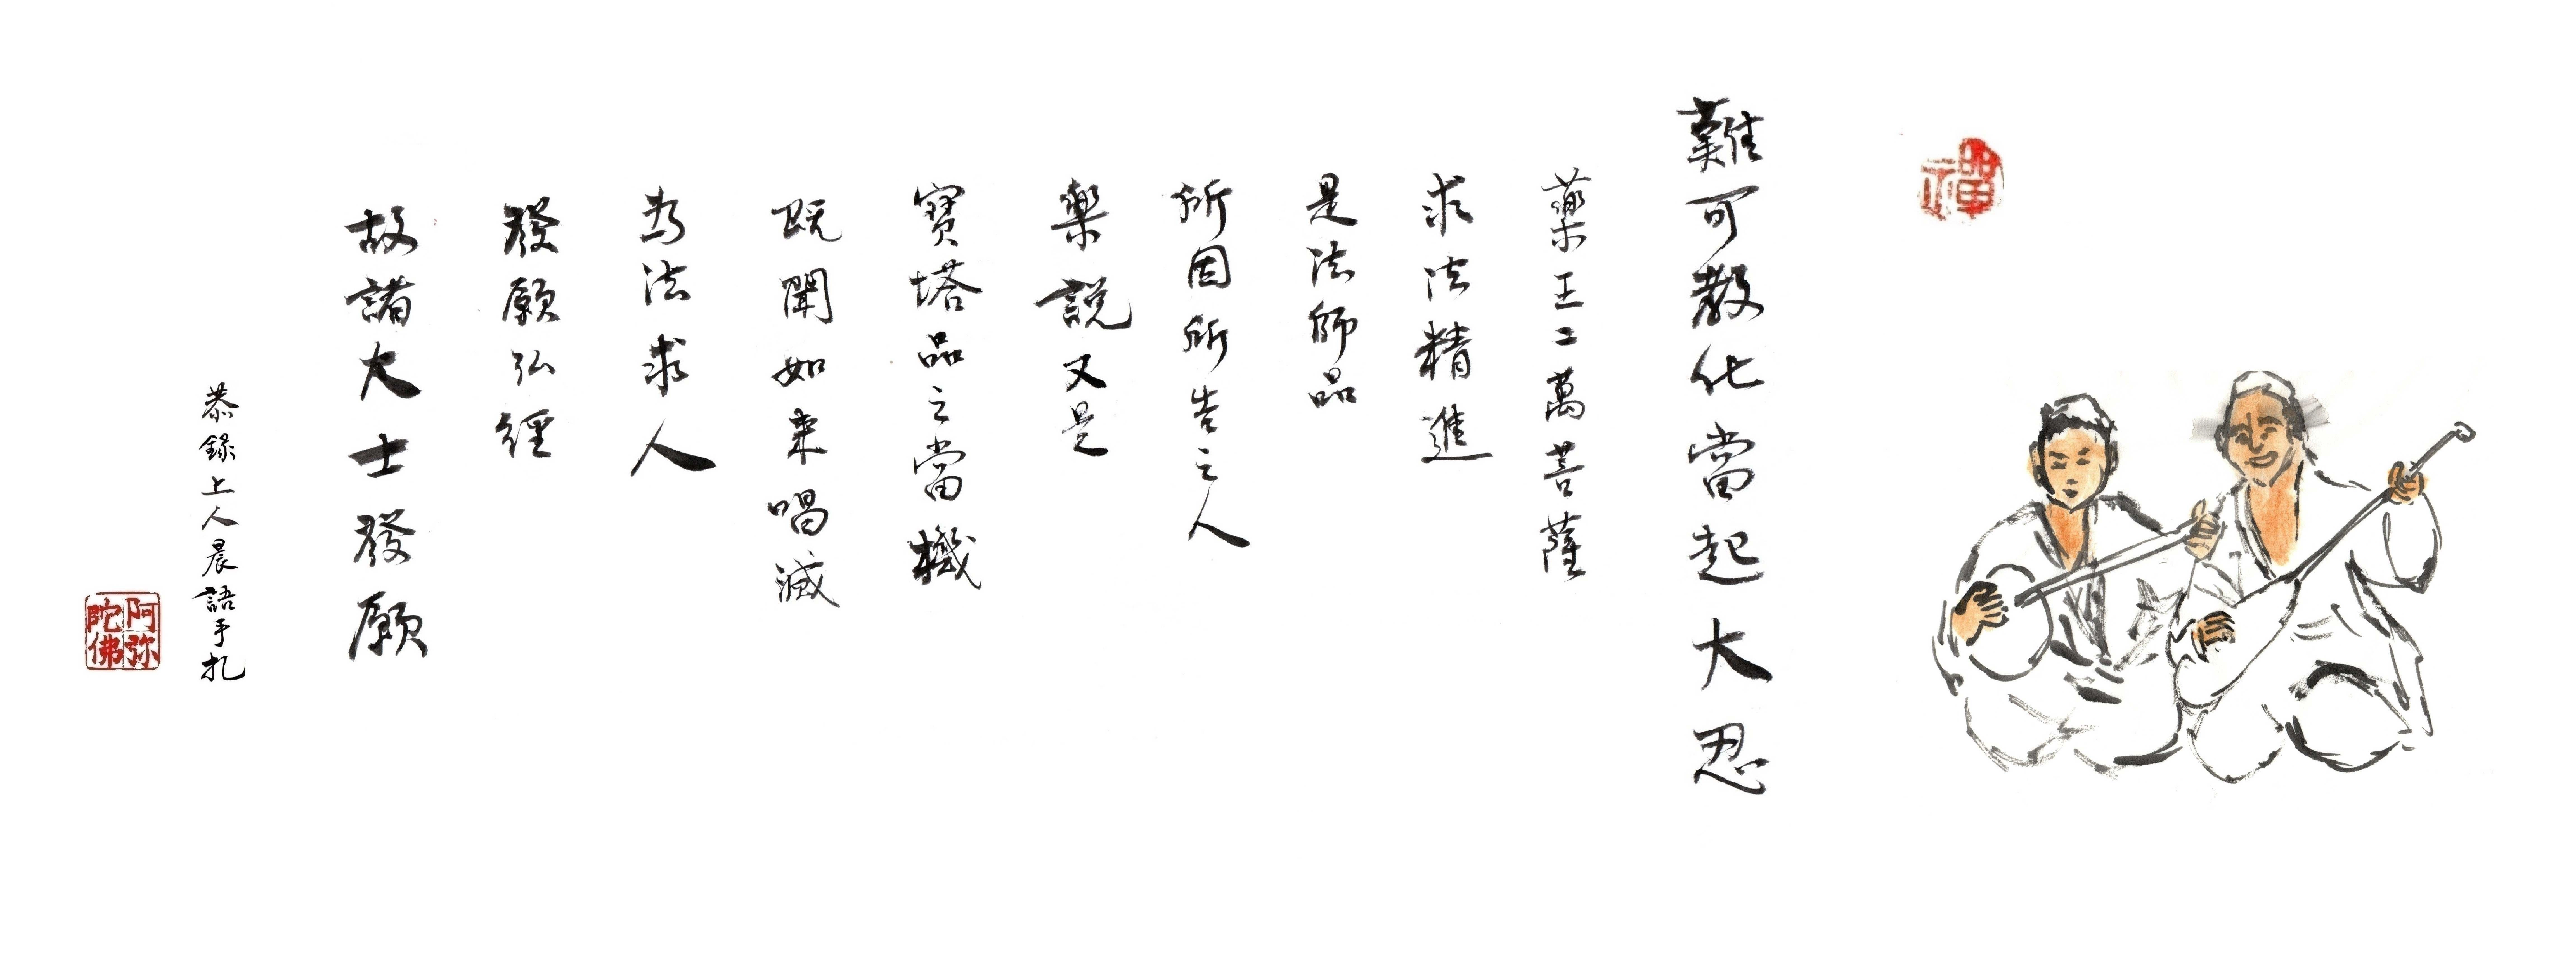 禪
難可教化當起大忍
藥王二萬菩薩
求法精進
是法師品
所因所告之人
樂說又是
寶塔品之當機
既聞如來唱滅
為法求人
發願弘經
故諸大士發願
恭錄上人晨語手札
阿弥
陀佛